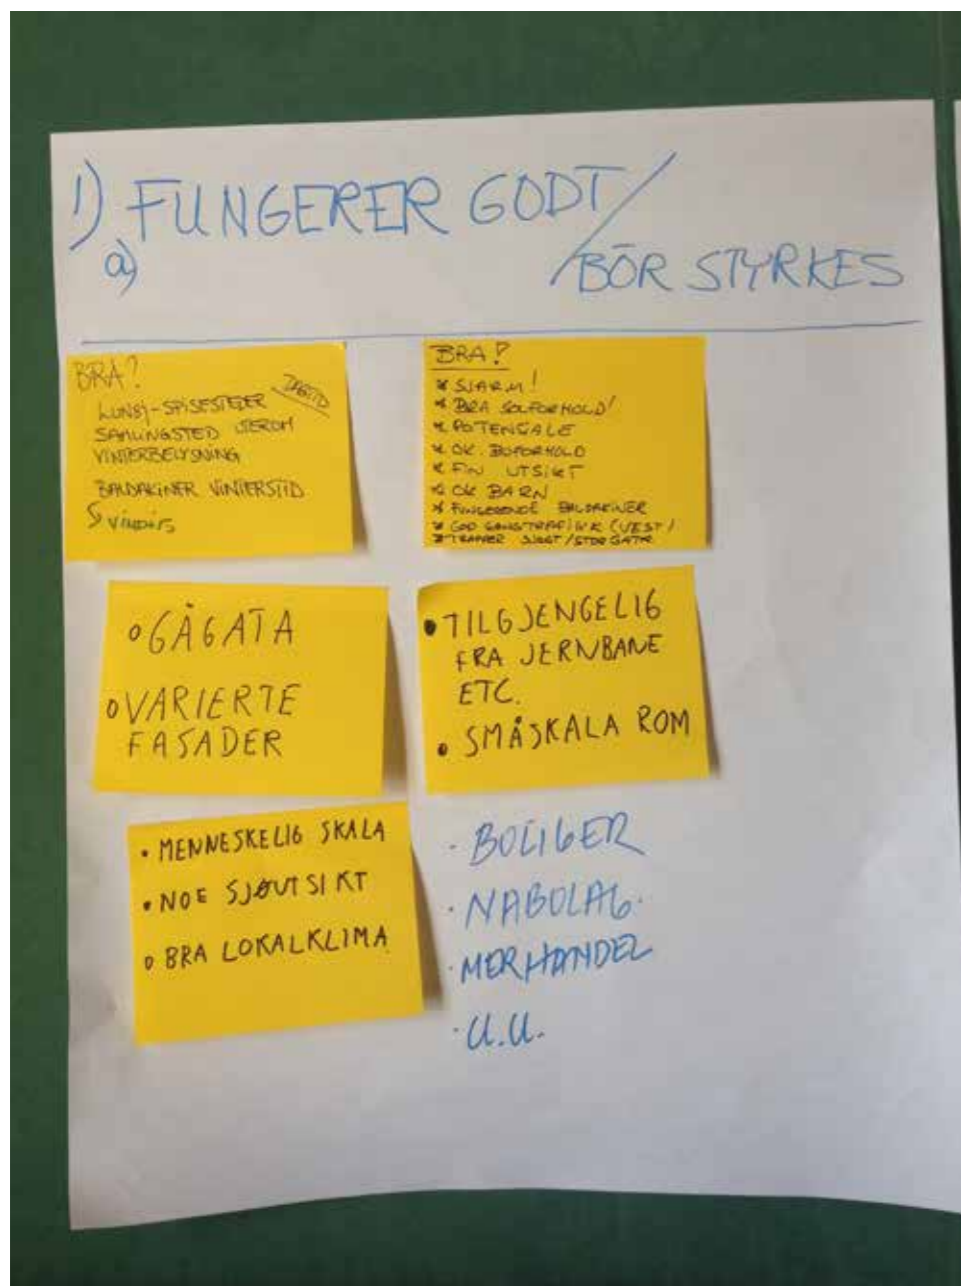 1) FUNGERER GODT/
a) BÖR STYRKES
BRA?
DAGTID
LUNSJ-SPISESTEDER
SAMLINGSTED
VINTERBELYSNING
BALDAKINER VINTERSTID
BRA!
* SJARM!
* BRA SOLFORHOLD!
* POTENSALE
* OK. BOFORHOLD
* FIN UTSIKT
* OK BARN
* FUNGERENDE BALDAKINER
* GOD GANGTRAFIKK (VEST)
* TRAPPER SJØGT/STORGATA
• GÅGATA
• VARIERTE
FASADER
• TILGJENGELIG
FRA JERNBANE
ETC.
• SMÅSKALA ROM
• MENNESKELIG SKALA
• NOE SJØUTSIKT
• BRA LOKALKLIMA
· BOLIGER
· NABOLAG.
· MERHANDEL
· U.U.